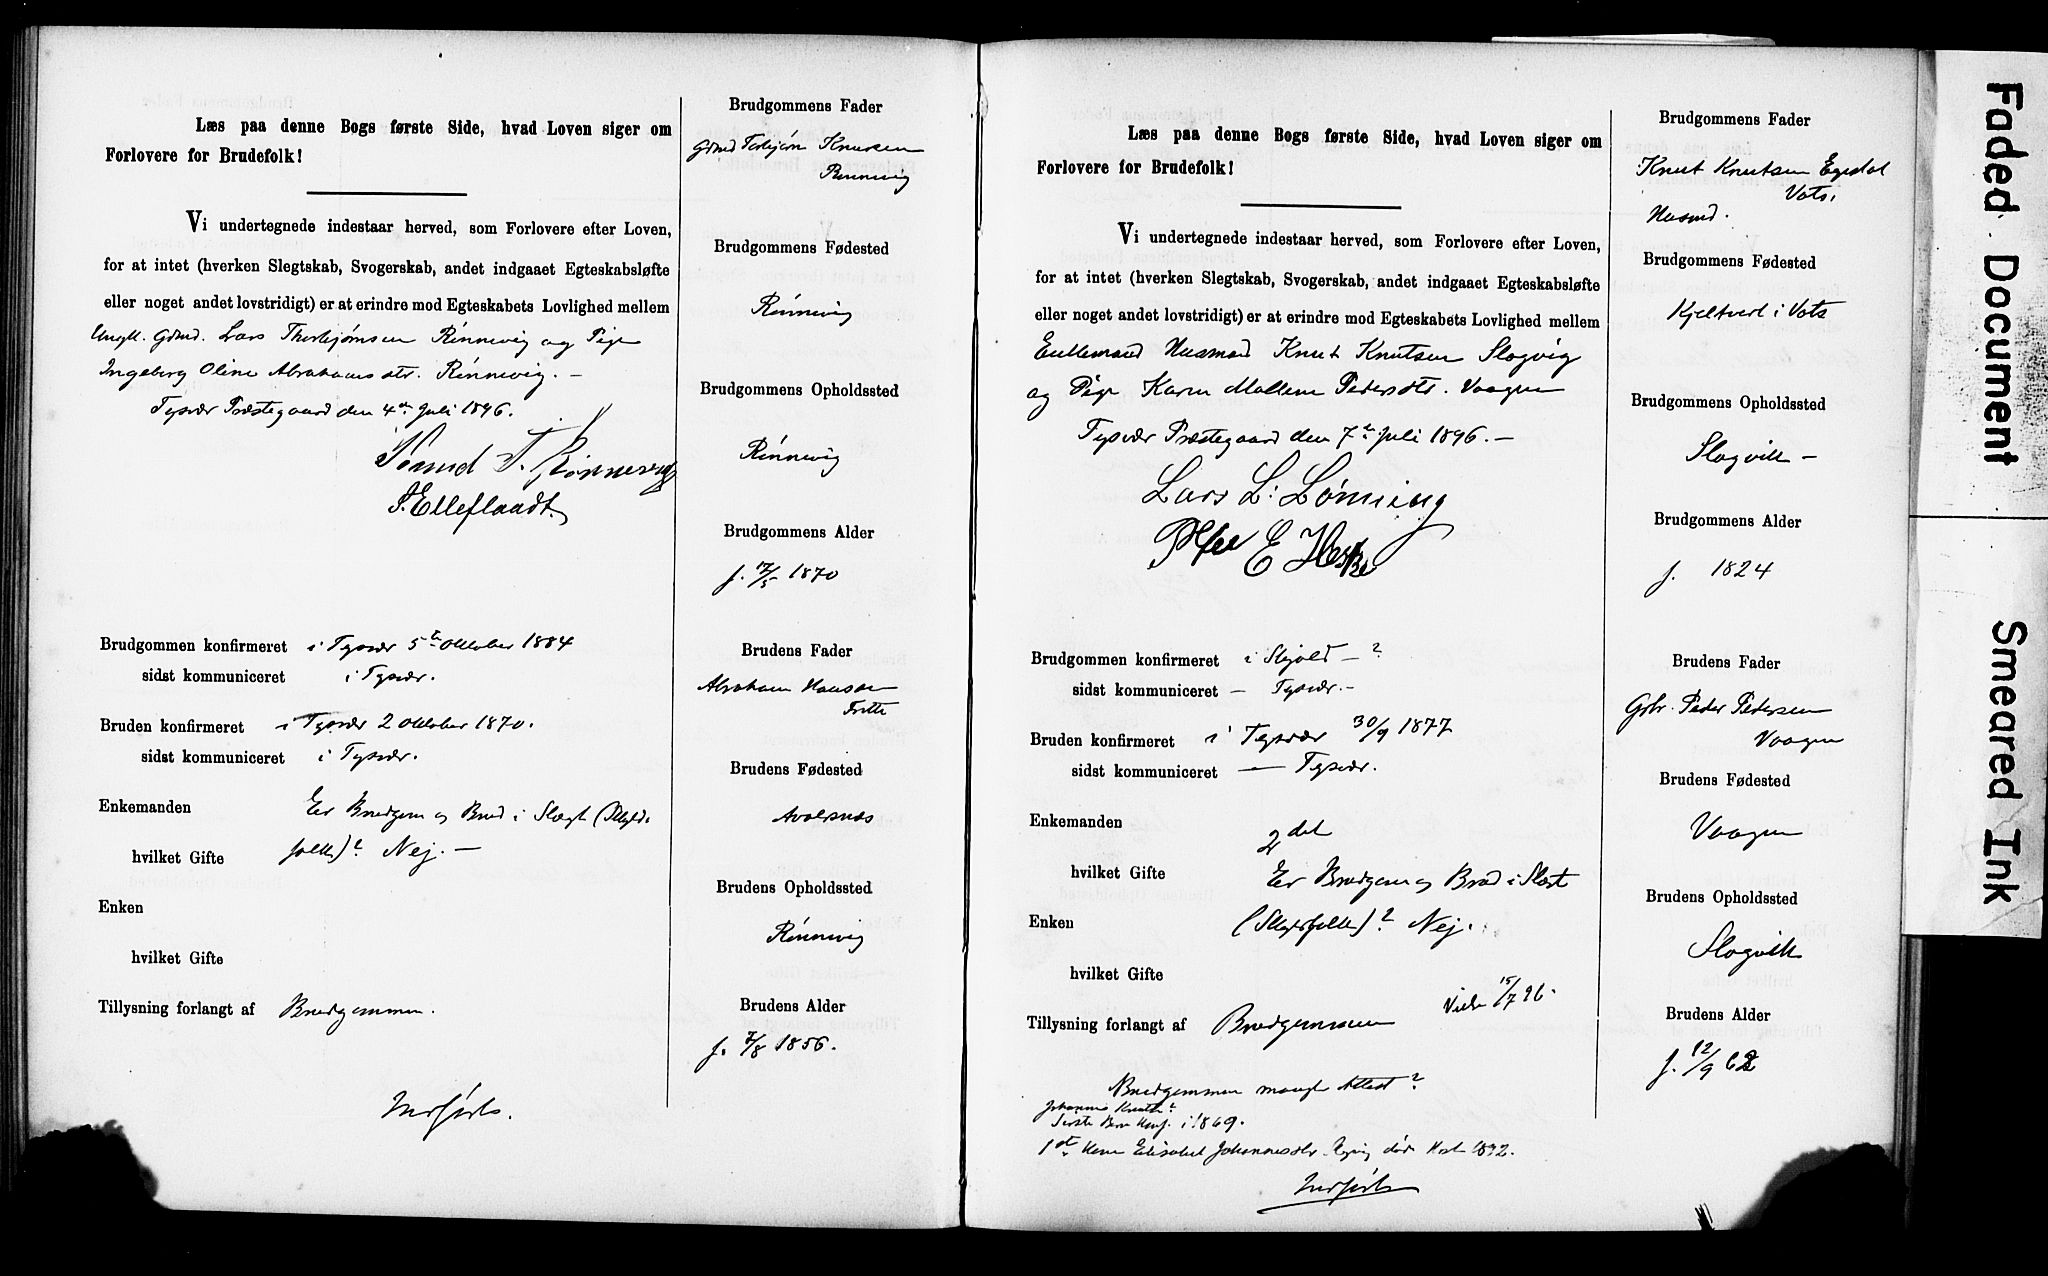 Læs paa denne Bogs første Side, hvad Loven siger om
Forlovere for Brudefolk!
Vi undertegnede indestaar herved, som Forlovere efter Loven,
for at intet (hverken Slegtskab, Svogerskab, andet indgaaet Egteskabsløfte
eller noget andet lovstridigt) er at erindre mod Egteskabets Lovlighed mellem
Ungk. Grmd. Lars Thorbjørnsen Rønnevig og Pige
Ingeborg Oline Abrahamsdtr. Rønnevig. –
Tysvær Præstegaard den 4de Juli 1896.
T. Rønnevig
Elleflaadt.
Brudgommen konfirmeret i Tysvær 5te Oktober 1884
sidst kommuniceret i Tysvær.
Bruden konfirmeret i Tysvær 2 Oktober 1870.
sidst kommuniceret i Tysvær.
Enkemanden Er Brudgom og Brud i Slægt (Skyld-
hvilket Gifte folk)? Nej. –
Enken
hvilket Gifte
Tillysning forlangt af Brudgommen.
Indførts.
Brudgommens Fader
Grmd Torbjørn Knutsen
Rønnevig
Brudgommens Fødested
Rønnevig
Brudgommens Opholdssted
Rønnevig
Brudgommens Alder
f. 17/5 1870
Brudens Fader
Abraham Hansen
Brudens Fødested
Avalsnæs
Brudens Opholdssted
Rønnevig
Brudens Alder
f. 7/8 1856.
Læs paa denne Bogs første Side, hvad Loven siger om
Forlovere for Brudefolk!
Vi undertegnede indestaar herved, som Forlovere efter Loven,
for at intet (hverken Slegtskab, Svogerskab, andet indgaaet Egteskabsløfte
eller noget andet lovstridigt) er at erindre mod Egteskabets Lovlighed mellem
Enkemand Husmand Knut Knutsen Slogvig
og Pige Karen Mallene Pedersdtr. Vaagen
Tysvær Præstegaard den 7de Juli 1896. –
Lars L. Lønning
E Heske
Brudgommen konfirmeret i Skjold – ?
sidst kommuniceret – Tysvær. –
Bruden konfirmeret i Tysvær 30/9 1877
sidst kommuniceret — Tysvær.
Enkemanden 2det
hvilket Gifte Er Brudgom og Brud i Slægt
Enken (Skyldfolk)? Nej.
hvilket Gifte
Viede 15/7 96.
Tillysning forlangt af Brudgommen
Brudgommen mangler Attest?
Johannes Knutsen?
Første Barn Konf. i 1869.
1ste Kone Elisabet Johannesdtr. død Høst 1892.
Indførts
Brudgommens Fader
Knut Knutsen Egedal
Vats.
Husmd.
Brudgommens Fødested
i Vats
Brudgommens Opholdssted
Slogvik –
Brudgommens Alder
f. 1824
Brudens Fader
Gbr. Peder Pedersen
Vaagen
Brudens Fødested
Vaagen
Brudens Opholdssted
Slogvik
Brudens Alder
f. 12/9 62
Faded Document
Smeared Ink